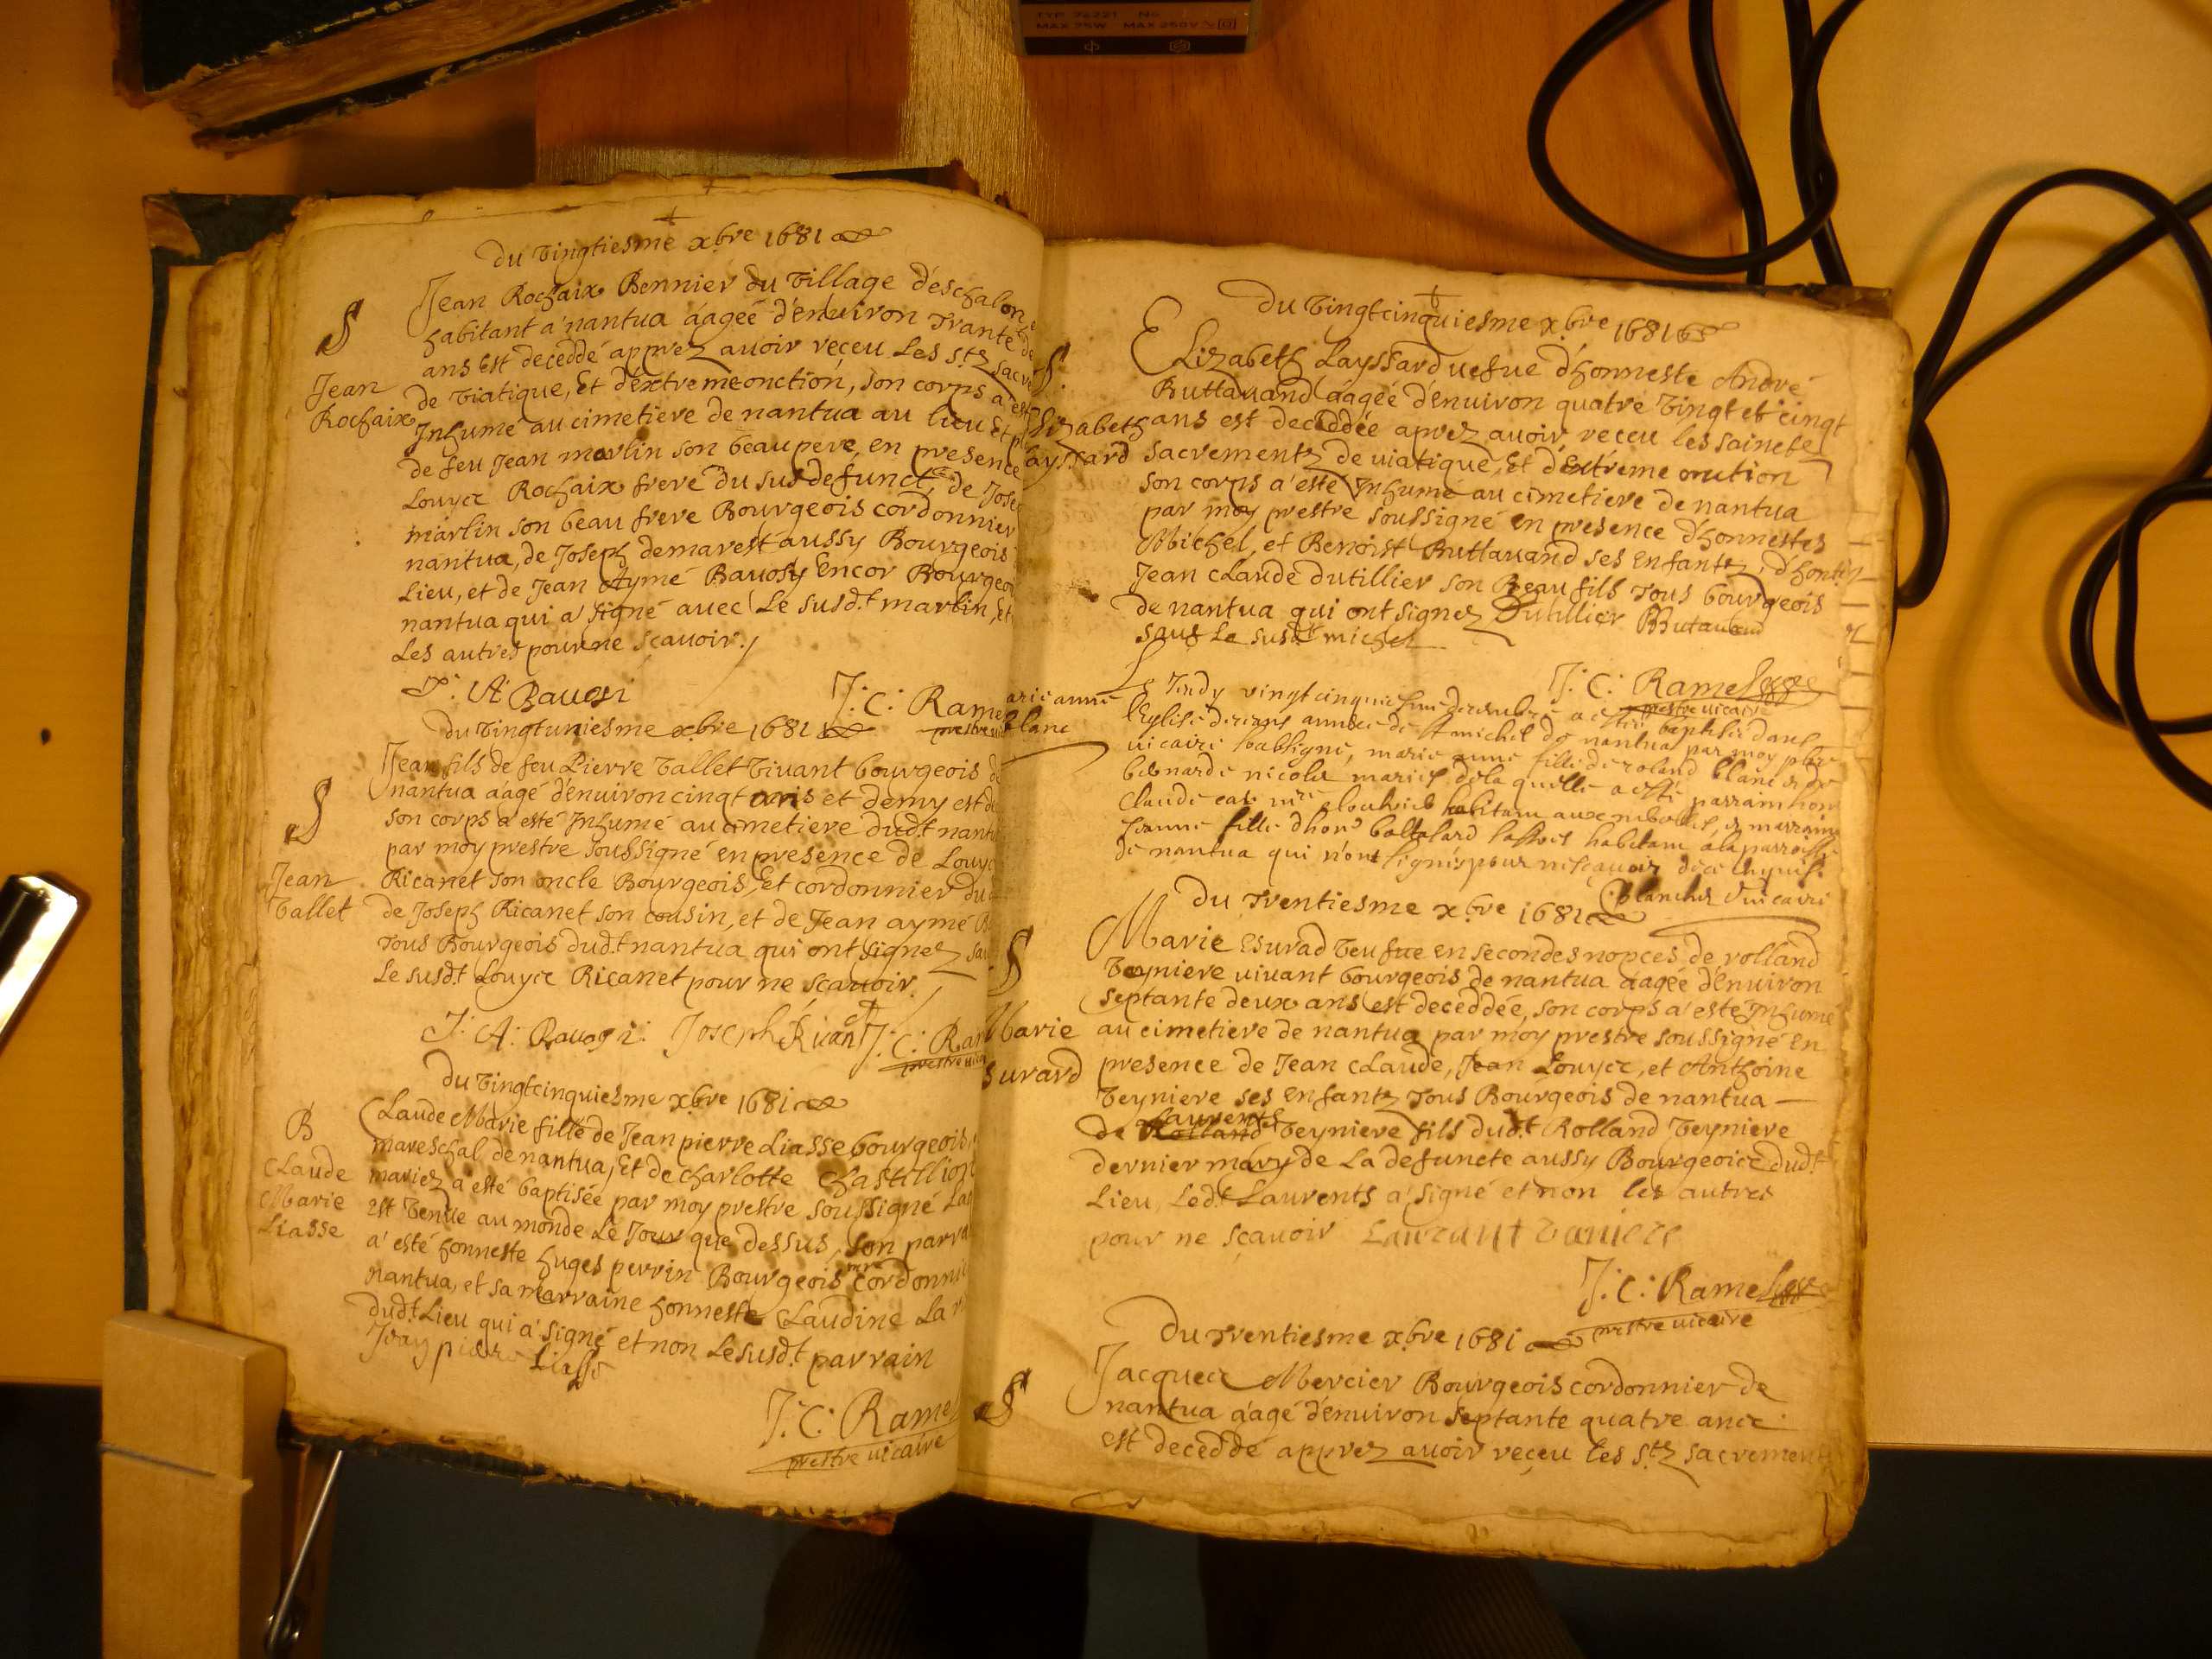 TYP 26221 No
MAX 75W MAX 250V
Du Vingtiesme xbre 1681
S
Jean
Rochaix
Jean Rochaix Pennier du Village déschalon
habitant a' nantua áagéé d'énuiron Trante
ans Est deceddé apprez auoir reçeu Les S.tz sacre
de Viatique, Et d'éxtremeonction, son corps a' est
Inhumé au cimetiere de nantua au lieu Et pl
de feu Jean marlin son beau pere, en presence
Louyce Rochaix frere du susdefunct, de Jose
marlin son beau frere Bourgeois cordonnier
nantua, de Joseph demarest aussy Bourgeois
Lieu, et de Jean Aymé Bauosy Encor Bourgeoi
nantua qui a' signé auec Le susd.t marlin, Et
Les autres pour ne sçauoir./
J: A: Bauosi
J: C: Rame
prestre ui
Du Vingtuniesme xbre 1681
S
Jean
Vallet
Jean fils de feu Pierre Vallet Viuant bourgeois de
nantua áagé d'énuiron cinqt ans et demy est de
son corps a esté Inhumé au cimetiere dud.t nantu
par moy prestre soussigné en presence de Louyc
Ricanet son oncle Bourgeois, Et cordonnier du
de Joseph Ricanet son cousin, et de Jean aymé B
Tous Bourgeois dud.t nantua qui ont signez sau
Le susd.t Louyce Ricanet pour ne scauoir.
J: A: Bauosi: Joseph Rican J: C: Ra
prestre uica
Du Vingtcinquiesme xbre 1681
B
Claude
Marie
Liasse
Claude Marie fille de Jean pierre Liasse bourgeois
mareschal de nantua, Et de charlotte chastillion
mariez a esté baptisée par moy prestre soussigné La
est Venüe au monde Le Jour que dessus, son parra
a' esté honneste huges perrin Bourgeois mre cordonni
nantua, et sa marraine honneste Claudine La
dud.t Lieu qui a' signé et non Le susd.t parrain
Jean pierre Liasse
J: C: Rame
prestre uicaire
Du Vingtcinquiesme xbre 1681
S.
Elizabeth
Layssard
Elizabeth Layssard uefue d'honneste André
Buttauand áagéé d'énuiron quatre Vingt et cinqt
ans est deceddée aprez auoir reçeu les saincte
sacrementz de uiatique, Et d'Extréme onction
son corps a' esté Inhumé au cimetiere de nantua
par moy prestre soussigné en presence d'honnestes
Michel, et Benoist Buttauand ses Enfantz, d'hon
Jean Claude dutillier son Beau fils Tous bourgeois
de nantua qui ont signez Dutillier BButauand
sauf Le susd.t michel
J: C: Ramel
prestre uicaire
arie anne
blanc
Le Jeudy vingt cinquiesme decembre a esté baptisée dans
l'Eglise de st michel de nantua par moy pbre
vicaire soubsigné, marie anne fille de roland blanc et de
bernarde nicolas mariés de la quelle a esté parrain hon
claude habitant aux et marraine
Jeanne fille d'hon habitant a la parroisse
de nantua qui n'ont signés pour ne sçauoir de ce enquis.
Blanchet Vicaire
Du Trentiesme xbre 1681
S
Marie
Esurard
Marie Esurad Veufue en secondes nopces de rolland
Veyniere uiuant bourgeois de nantua áagéé d'énuiron
septante deux ans est deceddée, son corps a' esté Inhumé
au cimetiere de nantua par moy prestre soussigné en
presence de Jean Claude, Jean Louyce, et Anthoine
Veyniere ses Enfantz Tous Bourgeois de nantua
de Rolland Laurents Veyniere fils dud.t Rolland Veyniere
dernier mary de La defuncte aussy Bourgeoice dud.t
Lieu, Led.t Laurents a' signé et non les autres
pour ne sçauoir Laurant Vaniere
J: C: Ramel
prestre uicaire
Du Trentiesme xbre 1681
S
Jacquece Mercier Bourgeois cordonnier de
nantua áagé d'énuiron septante quatre ance
est deceddé apprez auoir reçeu les S.tz sacrement